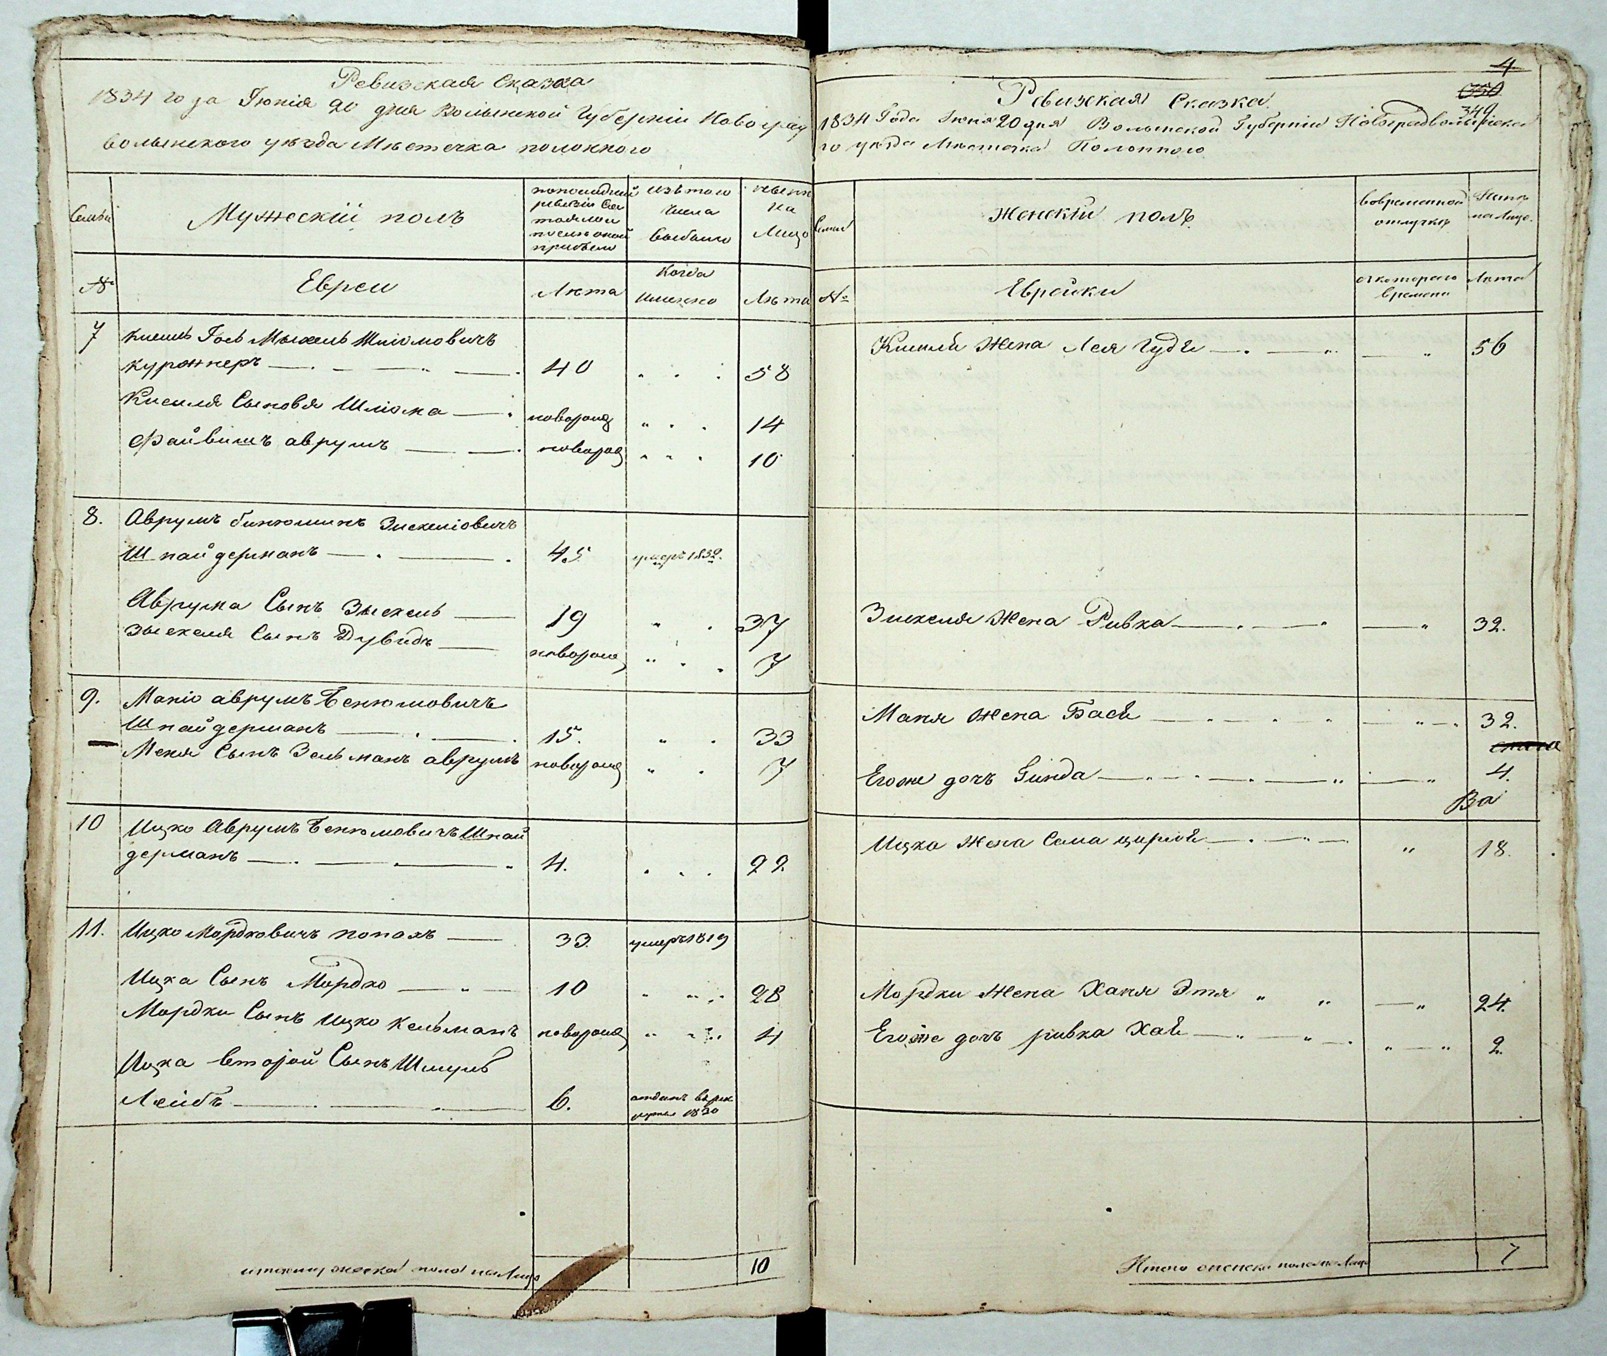 Ревизская Сказка
1834 года Іюнія 20 дня Волынской Губерніи Новоград
волынского уѣзда Мѣстечка полонного
Семьи
Мужескій полъ
по последней ревизіи состояло и после оной прибыло
изъ того числа выбыло
ныне на Лицо
№
Евреи
Лѣта
Когда именно
Лѣта
7
Кисиль Іось Мыхель Шліомовичъ
куржнеръ 40 58
Кисиля Сыновя Шліома новорожд 14
Файвишъ аврумъ новорожд 10
8.
Аврумъ бинюминъ Зысхеліовичъ
Шпайдерманъ 45 умеръ 1832.
Аврума Сынъ Зысхель 19 37
Зысхеля Сынъ Дувидъ новорожд 7
9.
Маніо аврумъ Бенюмовичъ
Шпайдерманъ 15. 33
Меня Сынъ Зельманъ аврумъ новорожд 7
10
Ицко Аврумъ Бенюмовичъ Шпай
дерманъ 4. 22.
11.
Ицко Мордковичъ попахъ 33. умеръ 1819
Ицка Сынъ Мордко 10 28
Мордки Сынъ Ицко Кельманъ новорожд 4
Ицка второй Сынъ Шмуль
Лейбъ 6. отданъ в рек
руты 1820
итого мужеска пола на Лицо 10
4
350
349
Ревизкая Сказка
1834 Года Іюня 20 дня Волынской Губерніи Новоградволынско
го уѣзда Мѣстечка Полонного
Семьи
Женскій полъ
во временной отлучке
Ныне на Лицо.
№
Еврейки
с которого времени
Лѣта
Кисиля Жена Лея Гудя 56
Зысхеля Жена Ривка 32.
Маня Жена Бася 32.
Егоже дочъ Гинда 4.
Ицка Жена Сома цирля 18.
Мордки Жена Ханя Этя 24.
Егоже дочъ ривка Хая 2.
Итого женска пола на Лицо 7